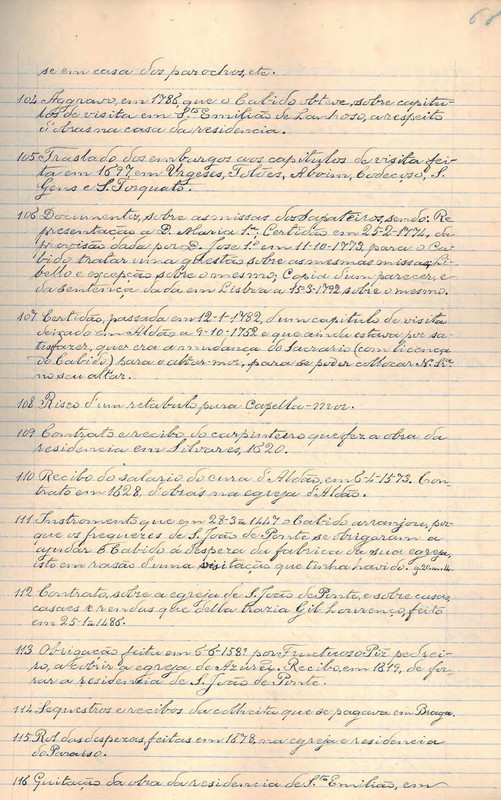 se em casa dos parochos, etc.
104 Aggravo, em 1786, que o Cabido obteve, sobre capitu-
los de visita em Sto Emilião de Lanhoso, a respeito
d'obras na casa da residencia.
105 Traslado dos emburgos aos capitulos de visita fei-
ta em 1697, em Urgeses, Tolões, Aboim, Codeçoso, S.
Gens e S. Torquato.
106 Documentos, sobre as missas dos Sapateiros, sendo: Re-
presentação a D. Maria 1ª; Certidão em 25-2-1774, da
provisão dada por D. José 1º em 11-10-1773, para o Ca-
bido tratar uma questão sobre as mesmas missas; Li-
bello e excepção sobre o mesmo; Copia d'um parecer, e
da sentença dada em Lisboa a 15-3-1792 sobre o mesmo.
107 Certidão, passada em 12-1-1782, d'um capitulo de visita
deixado em Aldão a 9-10-1752 e que ainda estava por sa-
tisfazer, que era a mudança do Sacrario (com licença
do Cabido) para o altar-mór, para se poder collocar N. Srª
no seu altar.
108 Risco d'um retabulo para Capella-Mor.
109 Contrato e recibo, do carpinteiro que fez a obra da
residencia em Silvares, 1620.
110 Recibo do salario do cura d'Aldão, em 6-4-1573. Con-
trato em 1628, d'obras na egreja d'Aldão.
111 Instromento que em 28-3-1447 o Cabido arranjou, por-
que os freguezes de S. João de Ponte se obrigaram a
ajudar o Cabido á despeza da fabrica da sua egreja,
isto em rasão d'uma visitação que tinha havido.
112 Contrato, sobre a egreja de S. João de Ponte, e sobre casas,
casaes e rendas que della trazia Gil Lourenço, feito
em 25-1-1486.
113 Obrigação feita em 6-6-158? por Fructuoso Piz pedrei-
ro, a cobrir a egreja de Azurei. Recibo, em 1849, de for-
rar a residencia de S. João de Ponte.
114 Sequestros e recibos da colheita que se pagava em Braga.
115 Rol das despezas, feitas em 1678, na egreja e residencia
do Paraiso.
116 Quitação da obra da residencia de Sto Emilião, em